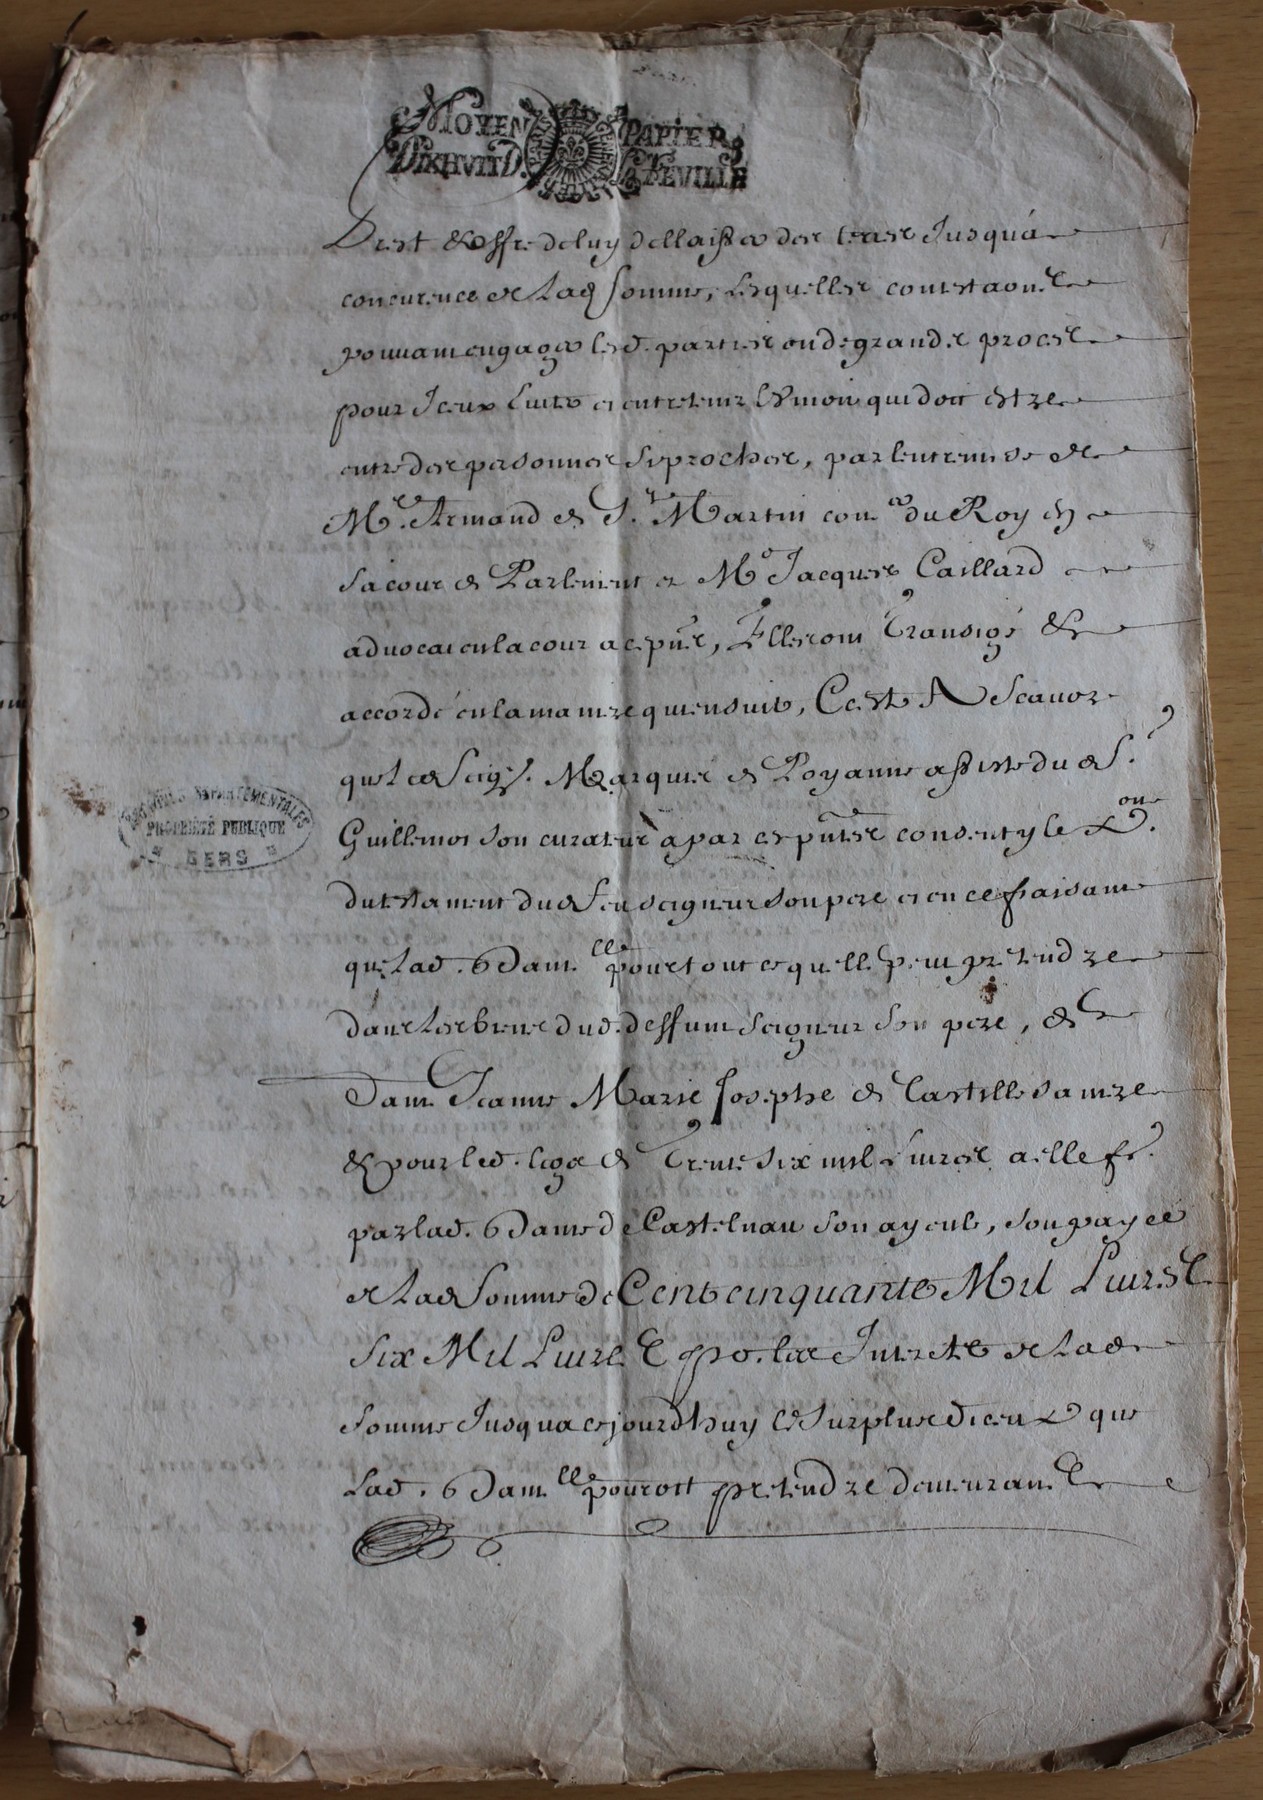 MOYEN PAPIER
DIXHVIT D. LA FEVILLE
Prest & offre de luy dellaisser des terres Jusqu'á
concurence de lad somme, lesquelles contestaon.s
pouuant engager lesd. parties en de grandes proces
pour Iceux euiter et entretenir l'Vnion qui doit estre
entre des personnes si proches, par lentremise de
Mre. Armand de St. Martin coner du Roy en
sa cour de Parlement et Me Jacques Caillard
aduocat en la cour a ce pnts, Elles ont Transigé &
accordé en la maniere qui ensuit, C'est A Scauoir
que led Seigr. Marquis de Poyanne assisté du d Sr.
Guillemot son curateur a par ces pntes consenty le xon.
du testament dud feu seigneur son pere et en ce faisant
que lad. Damlle pour tout ce quelle peut pretendre
dans les biens dud. deffunt seigneur son pere, &
Dame Jeanne Marie Josephe de Castille sa mere
& pour led. legs de Trente six mil liures a elle ft.
par lad. Dame de Castelnau son ayeule, soit payée
de lad Somme de Cent cinquante Mil Liures
Six Mil Liures po. les Interets de lad
somme Jusqua cejourdhuy le surplus diceux que
lad. Damlle pouroit pretendre demeurant
ARCHIVES DEPARTEMENTALES
PROPRIÉTÉ PUBLIQUE
GERS